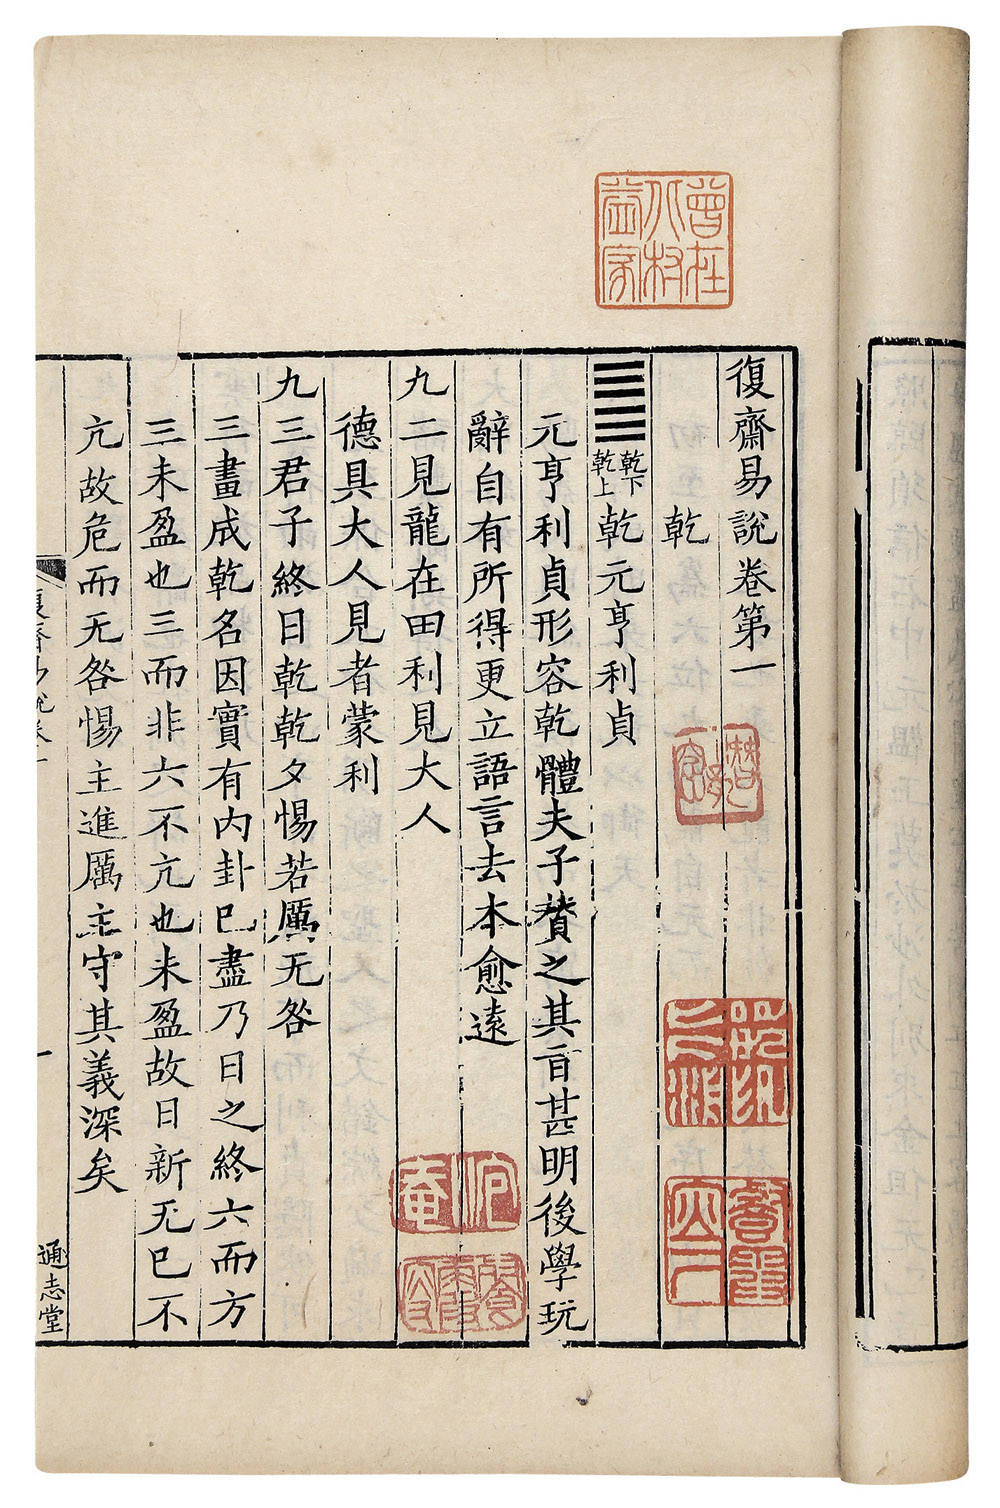 復齋易說卷第一
乾
乾下
乾上
乾元亨利貞
元亨利貞形容乾體夫子賛之其旨甚明後學玩
辭自有所得更立語言去本愈遠
九二見龍在田利見大人
德具大人見者蒙利
九三君子終日乾乾夕惕若厲无咎
三畫成乾名因實有内卦已盡乃日之終六而方
三未盈也三而非六不亢也未盈故日新无已不
亢故危而无咎惕主進厲主守其義深矣
復齋易說卷一
一
通志堂
曾在
八松
益家